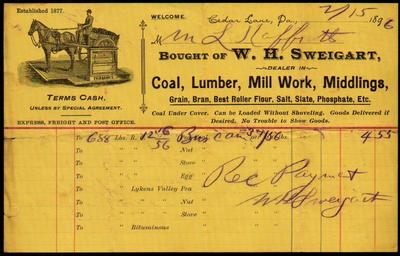 Established 1877.
WELCOME.
Cedar Lane, Pa., 2/15 1896
M
BOUGHT OF W. H. SWEIGART,
DEALER IN
Coal, Lumber, Mill Work, Middlings,
Grain, Bran, Best Roller Flour, Salt, Slate, Phosphate, Etc.
TERMS CASH,
UNLESS BY SPECIAL AGREEMENT.
EXPRESS, FREIGHT AND POST OFFICE.
Coal Under Cover. Can be Loaded Without Shoveling. Goods Delivered if
Desired, No Trouble to Show Goods.
To 688 lbs. R. 4 55
To " " Nut "
To " " Stove "
To " " Egg " Rec Payment
To " Lykens Valley Pea " W H Sweigart
To " " " Nut "
To " " " Stove "
To " Bituminous "